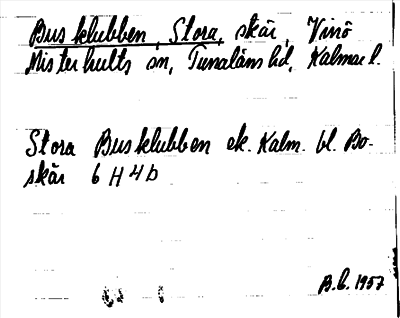 Busklubben, Stora, skär, Vinö
Misterhults sn, Tunaläns hd, Kalmar l.
Stora Busklubben ek. Kalm. bl. Bo-
skär 6 H 4 b
B.L. 1957